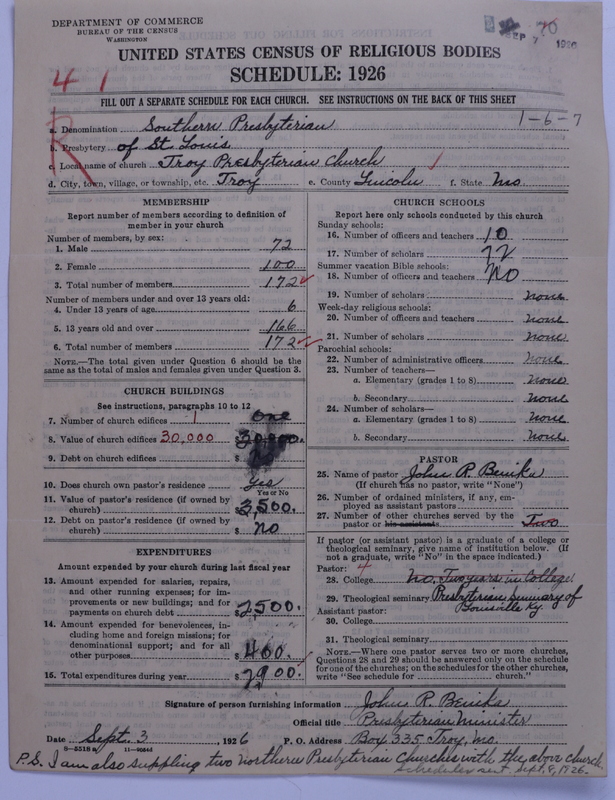 DEPARTMENT OF COMMERCE
BUREAU OF THE CENSUS
WASHINGTON
SEP 7 1926
70
UNITED STATES CENSUS OF RELIGIOUS BODIES
SCHEDULE: 1926
41
FILL OUT A SEPARATE SCHEDULE FOR EACH CHURCH. SEE INSTRUCTIONS ON THE BACK OF THIS SHEET
1-6-7
R
a. Denomination Southern Presbyterian
b. Presbytery of St. Louis
c. Local name of church Troy Presbyterian Church
d. City, town, village, or township, etc. Troy e. County Lincoln f. State Mo.
MEMBERSHIP
Report number of members according to definition of
member in your church
Number of members, by sex:
1. Male 72
2. Female 100
3. Total number of members 172
Number of members under and over 13 years old:
4. Under 13 years of age 6
5. 13 years old and over 166
6. Total number of members 172
NOTE.—The total given under Question 6 should be
same as the total of males and females given under Question 3.
CHURCH BUILDINGS
See instructions, paragraphs 10 to 12
7. Number of church edifices 1 One
8. Value of church edifices 30,000 $30,000.
9. Debt on church edifices $
10. Does church own pastor's residence Yes
Yes or No
11. Value of pastor's residence (if owned by
church) $3,500.
12. Debt on pastor's residence (if owned by
church) $ No
EXPENDITURES
Amount expended by your church during last fiscal year
13. Amount expended for salaries, repairs,
and other running expenses; for im-
provements or new buildings; and for
payments on church debt $2,500.
14. Amount expended for benevolences, in-
cluding home and foreign missions; for
denominational support; and for all
other purposes $ 400.
15. Total expenditures during year $2900.
CHURCH SCHOOLS
Report here only schools conducted by this church
Sunday schools:
16. Number of officers and teachers 10
17. Number of scholars 72
Summer vacation Bible schools:
18. Number of officers and teachers No
19. Number of scholars none
Week-day religious schools:
20. Number of officers and teachers none
21. Number of scholars none
Parochial schools:
22. Number of administrative officers None
23. Number of teachers—
a. Elementary (grades 1 to 8) None
b. Secondary None
24. Number of scholars—
a. Elementary (grades 1 to 8) None
b. Secondary None
PASTOR
25. Name of pastor John R. Benike
(If church has no pastor, write "None")
26. Number of ordained ministers, if any, em-
ployed as assistant pastors
27. Number of other churches served by the
pastor or his assistants Two
If pastor (or assistant pastor) is a graduate of a college or
theological seminary, give name of institution below. (If
not a graduate, write "No" in the space indicated.)
Pastor: 4
28. College No. Two years in College
29. Theological seminary Presbyterian Seminary of
Louisville Ky.
Assistant pastor:
30. College
31. Theological seminary
NOTE.—Where one pastor serves two or more churches,
Questions 28 and 29 should be answered only on the schedule
for one of the churches; on the schedules for the other churches,
write "See schedule for church."
Signature of person furnishing information John R. Benike
Official title Presbyterian Minister
Date Sept. 3 1926 P. O. Address Box 335, Troy, Mo.
8-5518a
P.S. I am also supplying two Northern Presbyterian Churches with the above church.
Schedules sent Sept. 8, 1926.